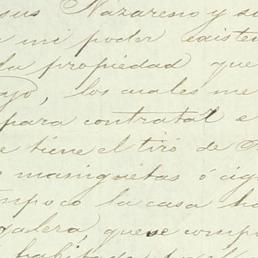 sus Nazareno y su
a mi poder existen
da propiedad que
ajo, los cuales me
para contratal e
e tiene el tiro de
s maniguetas ó cig
tampoco la casa ha
galera, que se comp